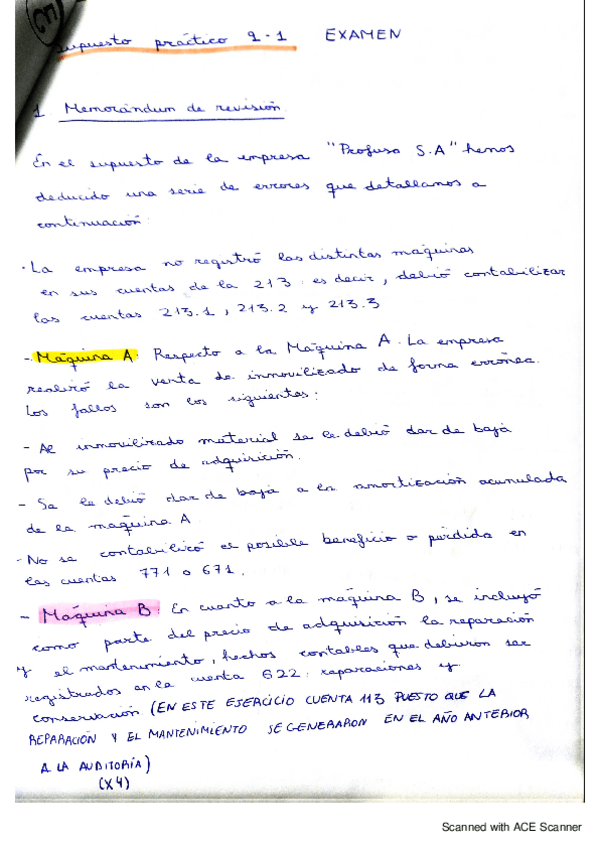 supuesto práctico 9.1 EXAMEN
1 Memorándum de revisión
En el supuesto de la empresa "Profusa S.A" hemos
deducido una serie de errores que detallamos a
continuación:
· La empresa no registró las distintas máquinas
en sus cuentas de la 213: es decir, debió contabilizar
las cuentas 213.1, 213.2 y 213.3
- Máquina A: Respecto a la Máquina A. La empresa
realizó la venta de inmovilizado de forma errónea.
Los fallos son los siguientes:
- Al inmovilizado material se le debió dar de baja
por su precio de adquisición.
- Se le debió dar de baja a la amortización acumulada
de la máquina A
- No se contabilizó el posible beneficio o pérdida en
las cuentas 771 o 671.
- Máquina B: En cuanto a la máquina B, se incluyó
como parte del precio de adquisición la reparación
y el mantenimiento, hechos contables que debieron ser
registrados en la cuenta 622: reparaciones y
conservación (EN ESTE EJERCICIO CUENTA 113 PUESTO QUE LA
REPARACIÓN Y EL MANTENIMIENTO SE GENERARON EN EL AÑO ANTERIOR
A LA AUDITORÍA)
(X4)
Scanned with ACE Scanner